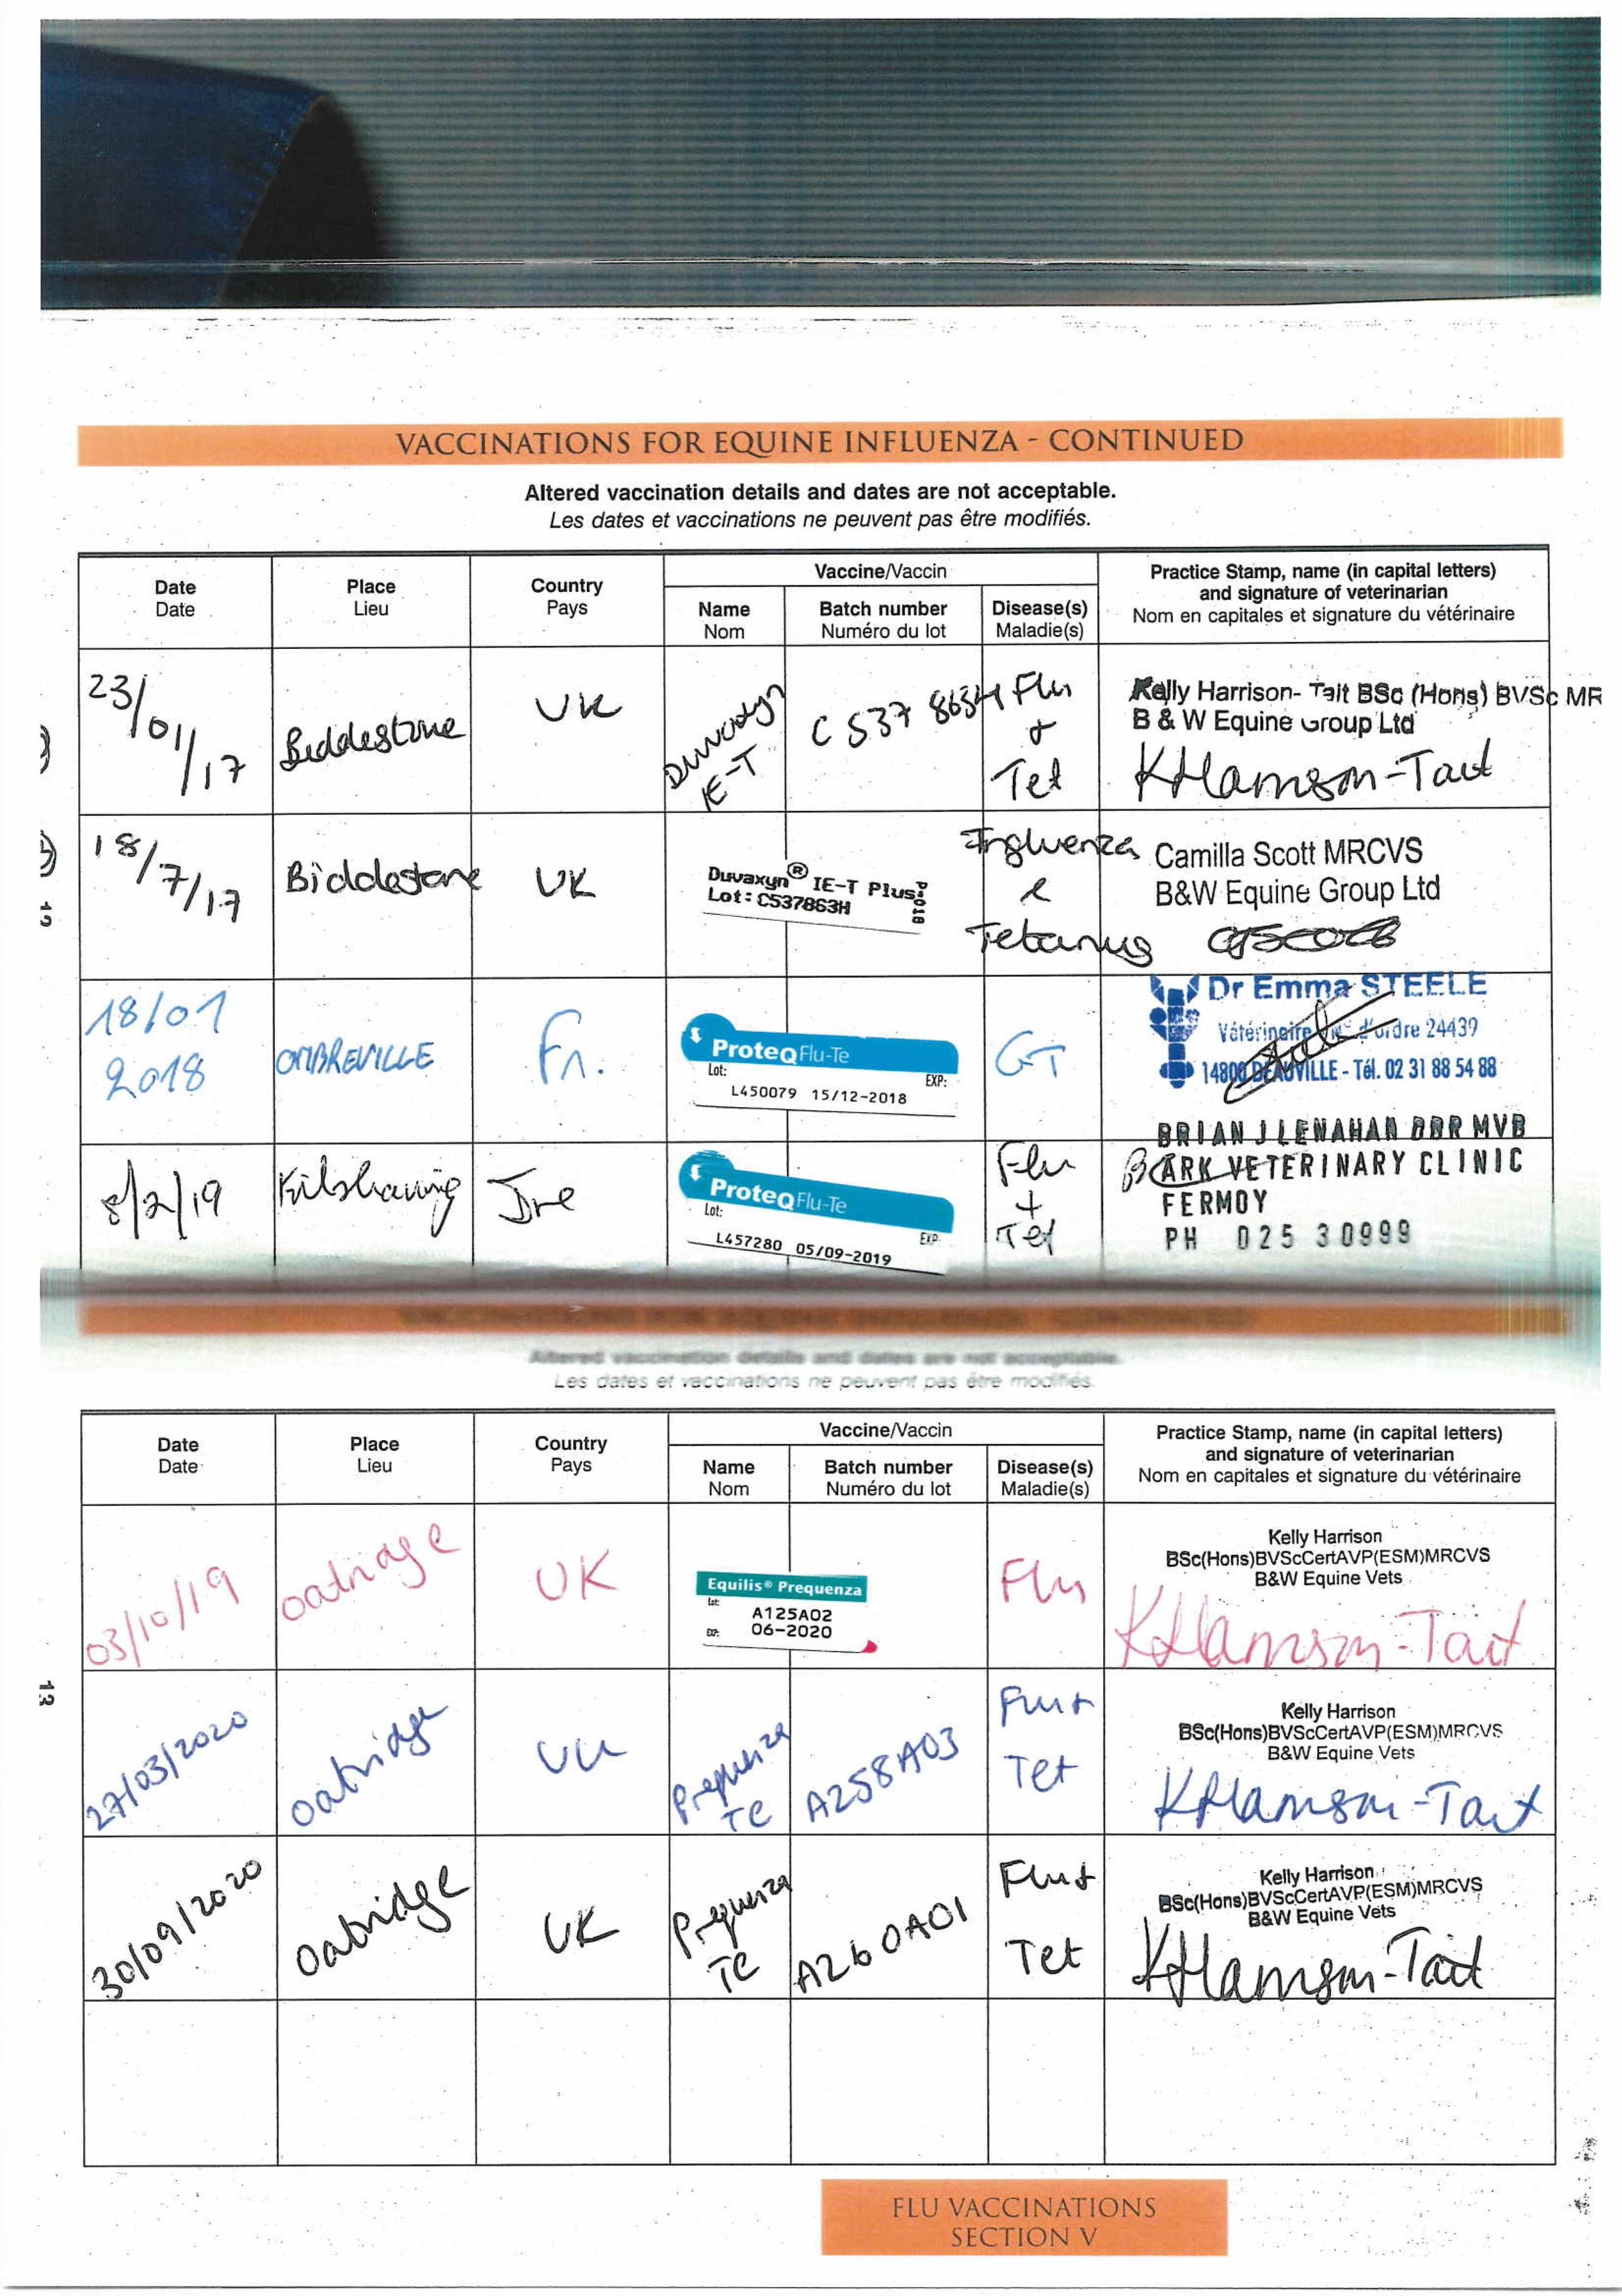 VACCINATIONS FOR EQUINE INFLUENZA - CONTINUED
Altered vaccination details and dates are not acceptable.
Les dates et vaccinations ne peuvent pas être modifiés.
Date
Date
Place
Lieu
Country
Pays
Vaccine/Vaccin
Name
Nom
Batch number
Numéro du lot
Disease(s)
Maladie(s)
Practice Stamp, name (in capital letters)
and signature of veterinarian
Nom en capitales et signature du vétérinaire
23/01/17
Biddestone
UK
Duvaxyn
IE-T
C537 863H
Flu
+
Tet
Kelly Harrison-Tait BSc (Hons) BVSc MR
B & W Equine Group Ltd
KHarrison-Tait
18/7/17
Biddestone
UK
Duvaxyn® IE-T Plus
Lot: C537863H
Influenza
&
Tetanus
Camilla Scott MRCVS
B&W Equine Group Ltd
18/01
2018
OMBREVILLE
Fr.
ProteqFlu-Te
Lot:
EXP:
L450079 15/12-2018
GT
Dr Emma STEELE
Vétérinaire N° d'ordre 24439
14800 DEAUVILLE - Tél. 02 31 88 54 88
8/2/19
Ire
ProteqFlu-Te
Lot:
EXP:
L457280 05/09-2019
Flu
+
Tet
BRIAN J LENAHAN MVB
ARK VETERINARY CLINIC
FERMOY
PH 025 30999
Altered vaccination details and dates are not acceptable.
Les dates et vaccinations ne peuvent pas être modifiés.
Date
Date
Place
Lieu
Country
Pays
Vaccine/Vaccin
Name
Nom
Batch number
Numéro du lot
Disease(s)
Maladie(s)
Practice Stamp, name (in capital letters)
and signature of veterinarian
Nom en capitales et signature du vétérinaire
03/10/19
Oatridge
UK
Equilis® Prequenza
Lot:
A125A02
EXP:
06-2020
Flu
Kelly Harrison
BSc(Hons)BVScCertAVP(ESM)MRCVS
B&W Equine Vets
KHarrison-Tait
13
27/03/2020
Oatridge
UK
Prequenza
TE
A258A03
Flu+
Tet
Kelly Harrison
BSc(Hons)BVScCertAVP(ESM)MRCVS
B&W Equine Vets
KHarrison-Tait
30/09/2020
Oatridge
UK
Prequenza
TE
A260A01
Flu+
Tet
Kelly Harrison
BSc(Hons)BVScCertAVP(ESM)MRCVS
B&W Equine Vets
KHarrison-Tait
FLU VACCINATIONS
SECTION V